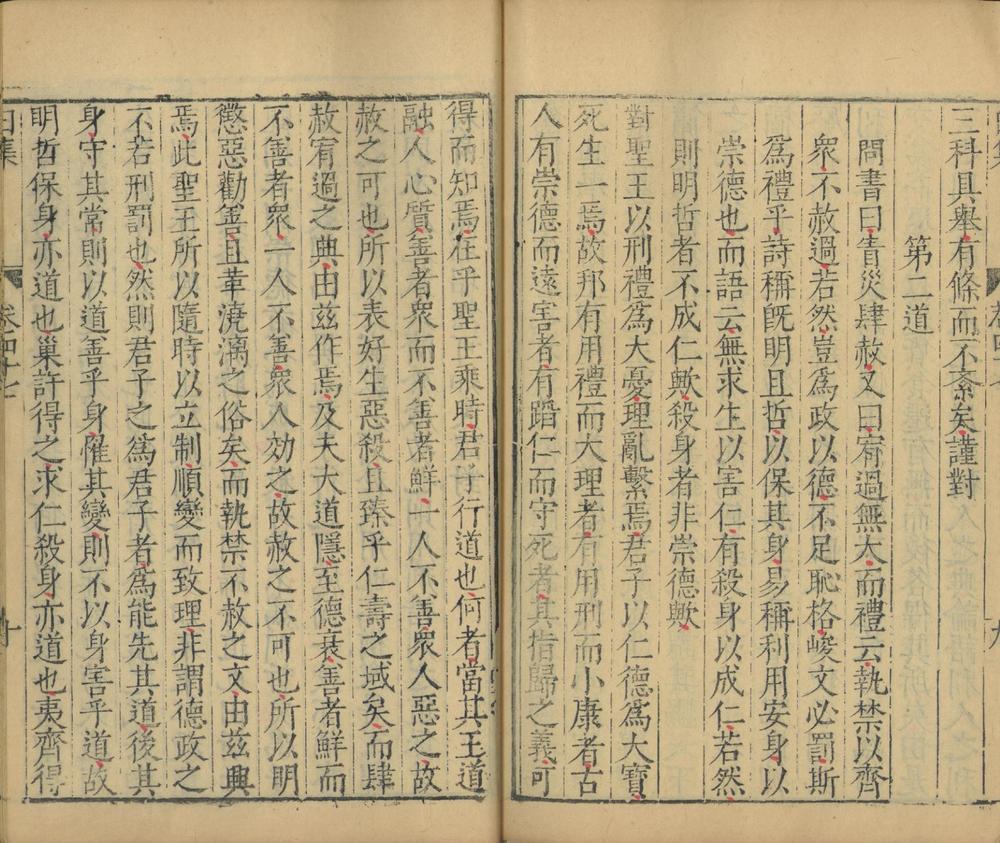 三科具舉有條而不紊矣謹對
第二道
問書曰眚災肆赦又曰宥過無大而禮云執禁以齊
衆不赦過若然豈爲政以德不足恥格峻文必罰斯
爲禮乎詩稱旣明且哲以保其身易稱利用安身以
崇德也而語云無求生以害仁有殺身以成仁若然
則明哲者不成仁歟殺身者非崇德歟
對聖王以刑禮爲大憂理亂繫焉君子以仁德爲大寶
死生一焉故邦有用禮而大理者有用刑而小康者古
人有崇德而遠害者有蹈仁而守死者其指歸之義可
得而知焉在乎聖王乘時君子行道也何者當其王道
融人心質善者衆而不善者鮮一人不善衆人惡之故
赦之可也所以表好生惡殺且臻乎仁壽之域矣而肆
赦宥過之典由兹作焉及夫大道隱至德衰善者鮮而
不善者衆一人不善衆人効之故赦之不可也所以明
懲惡勸善且革澆漓之俗矣而執禁不赦之文由兹興
焉此聖王所以隨時以立制順變而致理非謂德政之
不若刑罰也然則君子之爲君子者爲能先其道後其
身守其常則以道善乎身罹其變則不以身害乎道故
明哲保身亦道也巢許得之求仁殺身亦道也夷齊得
卷四十七
十